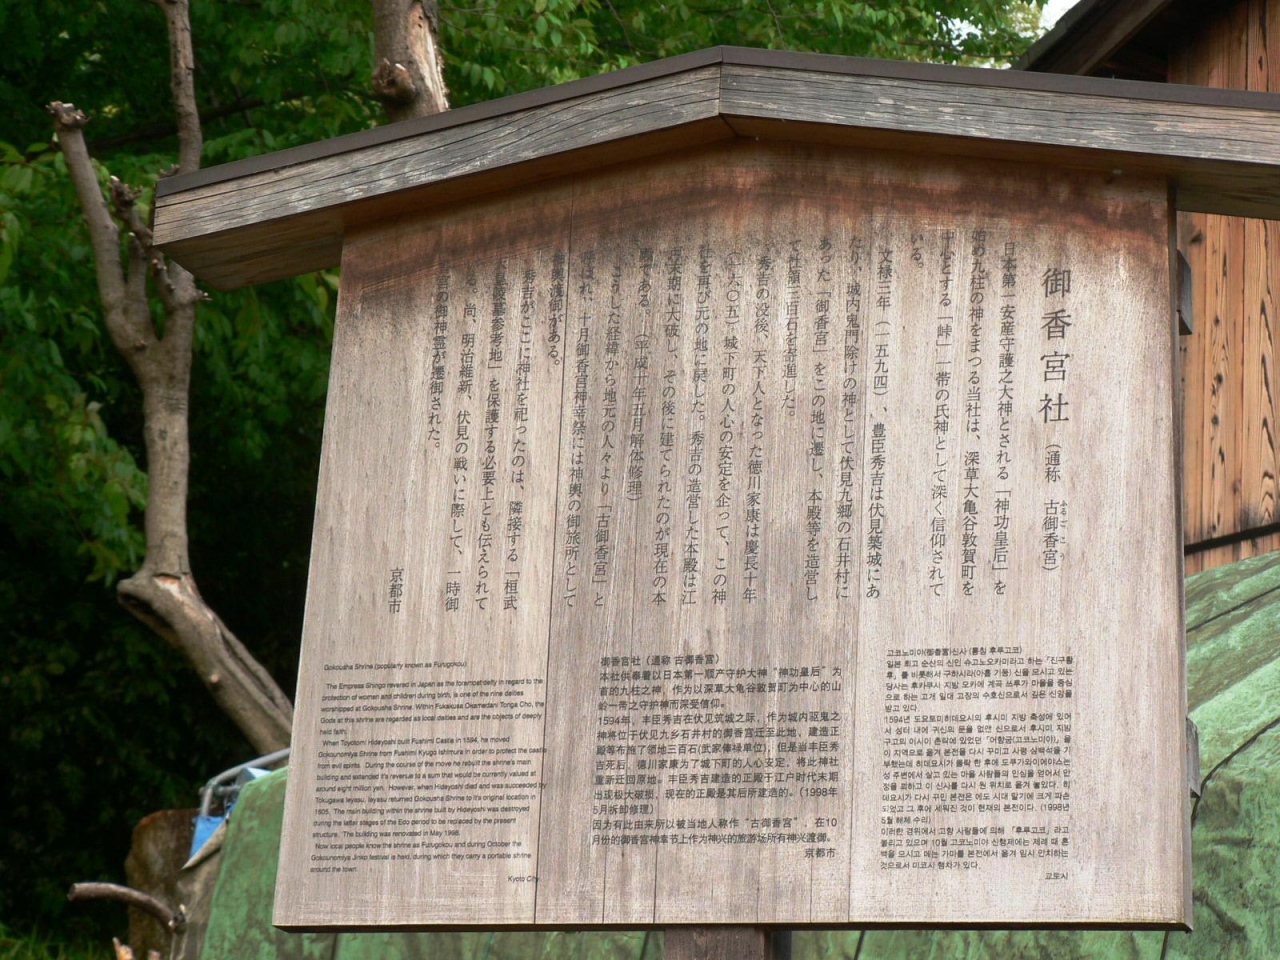 御香宮社（通称 古御香宮）
日本第一安産守護之大神とされる「神功皇后」を
の九柱の神をまつる当社は、深草大亀谷敦賀町を
中心とする「峠」一帯の氏神として深く信仰されて
いる。
文禄三年（一五九四）、豊臣秀吉は伏見築城にあ
たり、城内鬼門除けの神として伏見九郷の石井村に
あった「御香宮」をこの地に遷し、本殿等を造営し
て社領三百石を寄進した。
秀吉の没後、天下人となった徳川家康は慶長十年
（一六〇五）城下町の人心の安定を企って、この神
社を再び元の地に戻した。秀吉の造営した本殿は江
戸末期に大破し、その後に建てられたのが現在の本
殿である。（平成十年五月解体修理）
こうした経緯から地元の人々より「古御香宮」と
呼ばれ、十月御香宮神幸祭には神輿の御旅所として
渡御がある。
秀吉がここに神社を祀ったのは、隣接する「桓武
陵墓参考地」を保護する必要上とも伝えられて
いる。尚、明治維新、伏見の戦いに際して、一時御
香宮の御神霊が遷御された。
京都市
Gokousha Shrine (popularly known as Furugokou)
The Empress Shingo revered in Japan as the foremost deity in regard to the
protection of women and children during birth, is one of the nine deities
worshipped at Gokousha Shrine. Within Fukakusa Okamedani Tonga Cho, the
Gods at this shrine are regarded as local deities and are the objects of deeply
held faith.
When Toyotomi Hideyoshi built Fushimi Castle in 1594, he moved
Gokounomiya Shrine from Fushimi Kyugo Ishimura in order to protect the castle
from evil spirits. During the course of the move he rebuilt the shrine's main
building and extended it's revenue to a sum that would be currently valued at
around eight million yen. However, when Hideyoshi died and was succeeded by
Tokugawa Ieyasu, Ieyasu returned Gokousha Shrine to it's original location in
1605. The main building within the shrine built by Hideyoshi was destroyed
during the latter stages of the Edo period to be replaced by the present
structure. The building was renovated in May 1998.
Now local people know the shrine as Furugokou and during October the
Gokounomiya Jinko festival is held, during which they carry a portable shrine
around the town.
Kyoto City
御香宫社（通称 古御香宫）
本社供奉着以日本第一顺产守护大神“神功皇后”为
首的九柱之神，作为以深草大龟谷敦贺町为中心的山
岭一带之守护神而深受信仰。
1594年，丰臣秀吉在伏见筑城之际，作为城内驱鬼之
神将位于伏见九乡石井村的御香宫迁至此地，建造正
殿等布施了领地三百石(武家俸禄单位)；但是当丰臣秀
吉死后，德川家康为了城下町的人心安定，将此神社
重新迁回原地。丰臣秀吉建造的正殿于江户时代末期
出现极大破损，现在的正殿是其后所建造的。（1998年
5月拆卸修理）
因为有此由来所以被当地人称作“古御香宫”，在10
月份的御香宫神幸节上作为神兴的旅游场所有神兴渡御。
京都市
고코노미야(御香宮)신사 (통칭 후루고코)
일본 최고 순산의 신인 슈고노오카미라고 하는「진구황
후」를 비롯해서 구하시라(아홉 기둥) 신을 모시고 있는
당사는 후카쿠사 지방 오카메 계곡 쓰루가 마을을 중심
으로 하는 고개 일대 고장의 수호신으로서 깊은 신앙을
받고 있다.
1594년 도요토미히데요시의 후시미 지방 축성에 있어
서 성터 내에 귀신의 문을 없앤 신으로서 후시미 지방
구고의 이시이 촌락에 있었던「어향궁(고코노미야)」을
이 지역으로 옮겨 본전을 다시 꾸미고 사령 삼백석을 기
부했는데 히데요시가 몰락 한 후에 도쿠가와이에야스는
성 주변에서 살고 있는 마을 사람들의 민심을 얻어서 안
정을 꾀하고 이 신사를 다시 원 위치로 옮겨 놓았다. 히
데요시가 다시 꾸민 본전은 에도 시대 말기에 크게 파손
되었고 그 후에 세워진 것이 현재의 본전이다. (1998년
5월 해체 수리)
이러한 경위에서 고향 사람들에 의해 「후루고코」라고
불리고 있으며 10월 고코노미야 신행제에는 제례 때 혼
백을 모시고 메는 가마를 본전에서 옮겨 임시 안치하는
것으로서 미코시 행차가 있다.
교토시